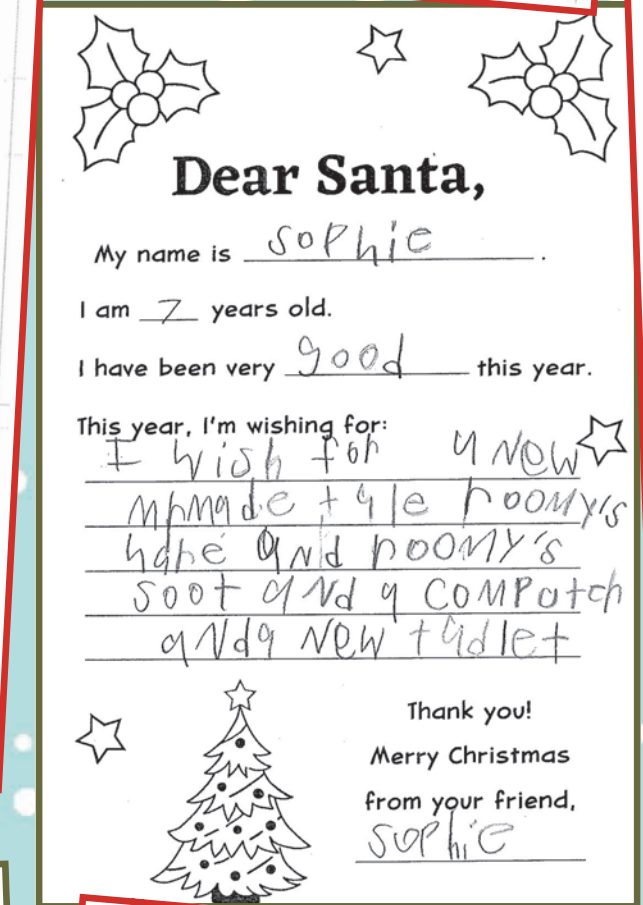 Dear Santa,
My name is Sophie.
I am 7 years old.
I have been very good this year.
This year, I'm wishing for:
I wish for a new
mrmade tale roomy's
hare and roomy's
soot and a computer
and a new tadlet
Thank you!
Merry Christmas
from your friend,
Sophie